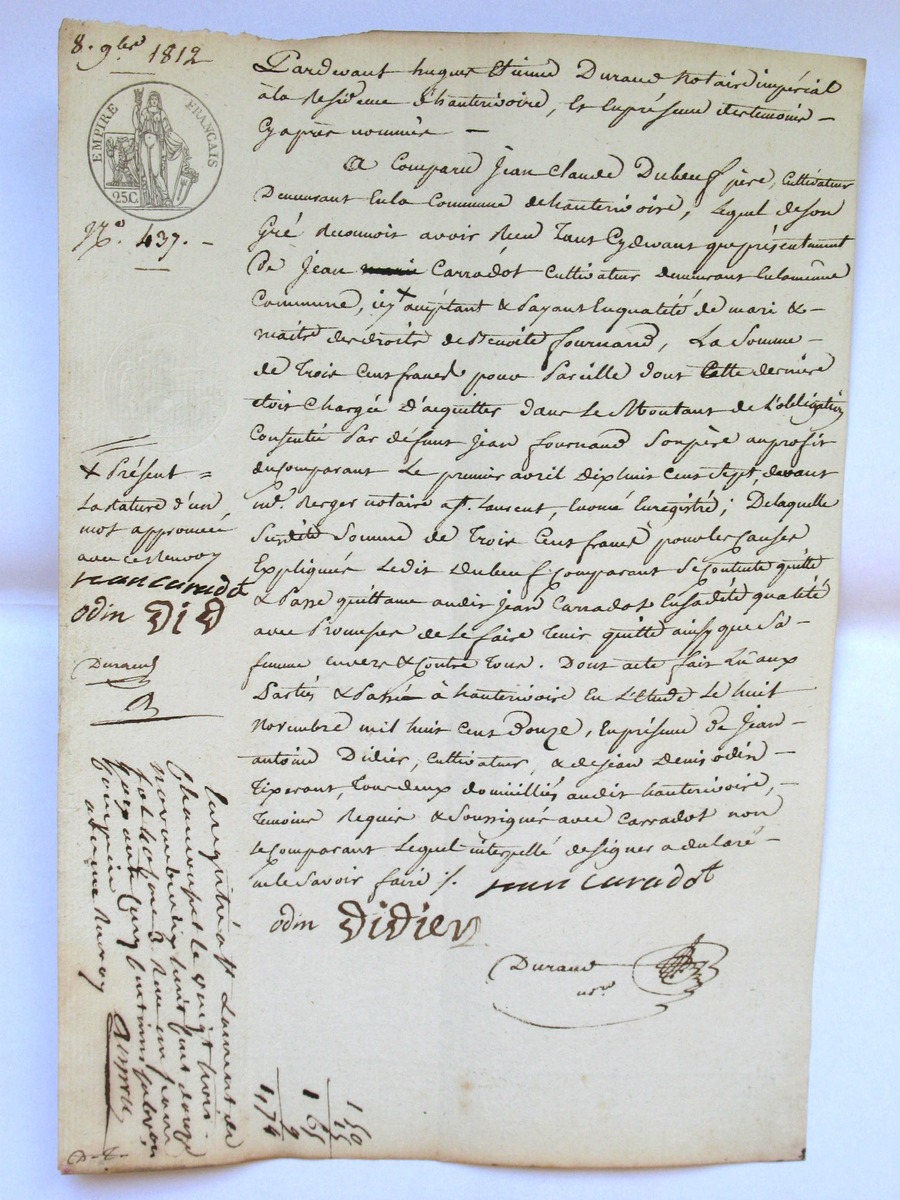 8. 9bre 1812
EMPIRE FRANÇAIS
25C.
No. 437. -
Pardevant hugues Etienne Durand Notaire impérial
à la Residence d'hauterivoire, Et Enprésence destemoins -
Cyaprès nommés -
A Comparu Jean Claude Dubeuf père, Cultivateur
Demeurant Enla Commune dehauterivoire, Lequel deson
Gré Reconnoit avoir Reçu Tant Cydevant queprésentement
De Jean marie Carradot Cultivateur demeurant Enlamême
Commune, icy + acceptant & Payant Enqualité de mari &-
maitre desdroits deBenoite fournand, La Somme -
de Trois Cent francs pour Pareille dont Cette dernière
étoit Chargée D'acquitter dans Le Montant de L'obligation
Consentie Par défunt Jean fournand Sonpère auprofit
ducomparant Le premier avril dixhuit Cent Sept, devant
me. Berger notaire a st. Laurent, Enregistré; Delaquelle
Susdite Somme de Trois Cent francs pourles Causes
Expliquées Ledit Dubeuf Comparant Se Contente quitte
& Passe quittance audit Jean Carradot Ensadite qualité
avec Promesse de Le faire Tenir quitte ainsy que Sa
femme Envers & Contre Tous. Dont acte fait Lu aux
Parties & Passé à hauterivoire En L'Etude Le huit
Novembre mil huit Cent Douze, Enprésence de Jean-
antoine Didier, Cultivateur, & de Jean Denis odin -
Tixerant, Tous deux domiciliés audit hauterivoire, -
Temoins Requis & Soussignés avec Carradot non
Le Comparant Lequel interpellé designer a déclaré -
nele Savoir faire ./.
Jean caradot
odin Didier
Durand
nre
+ Présent =
La rature d'un
mot approuvée
avec ce Renvoy
Jean caradot
odin DiD
Durand
Enregistré a st Laurent de
Chamousset le vingt trois -
novembre dix huit cent douze
fol. Reçu un franc
cinquante cinq centimes
150
15
1 65
9
1,74
D. t.